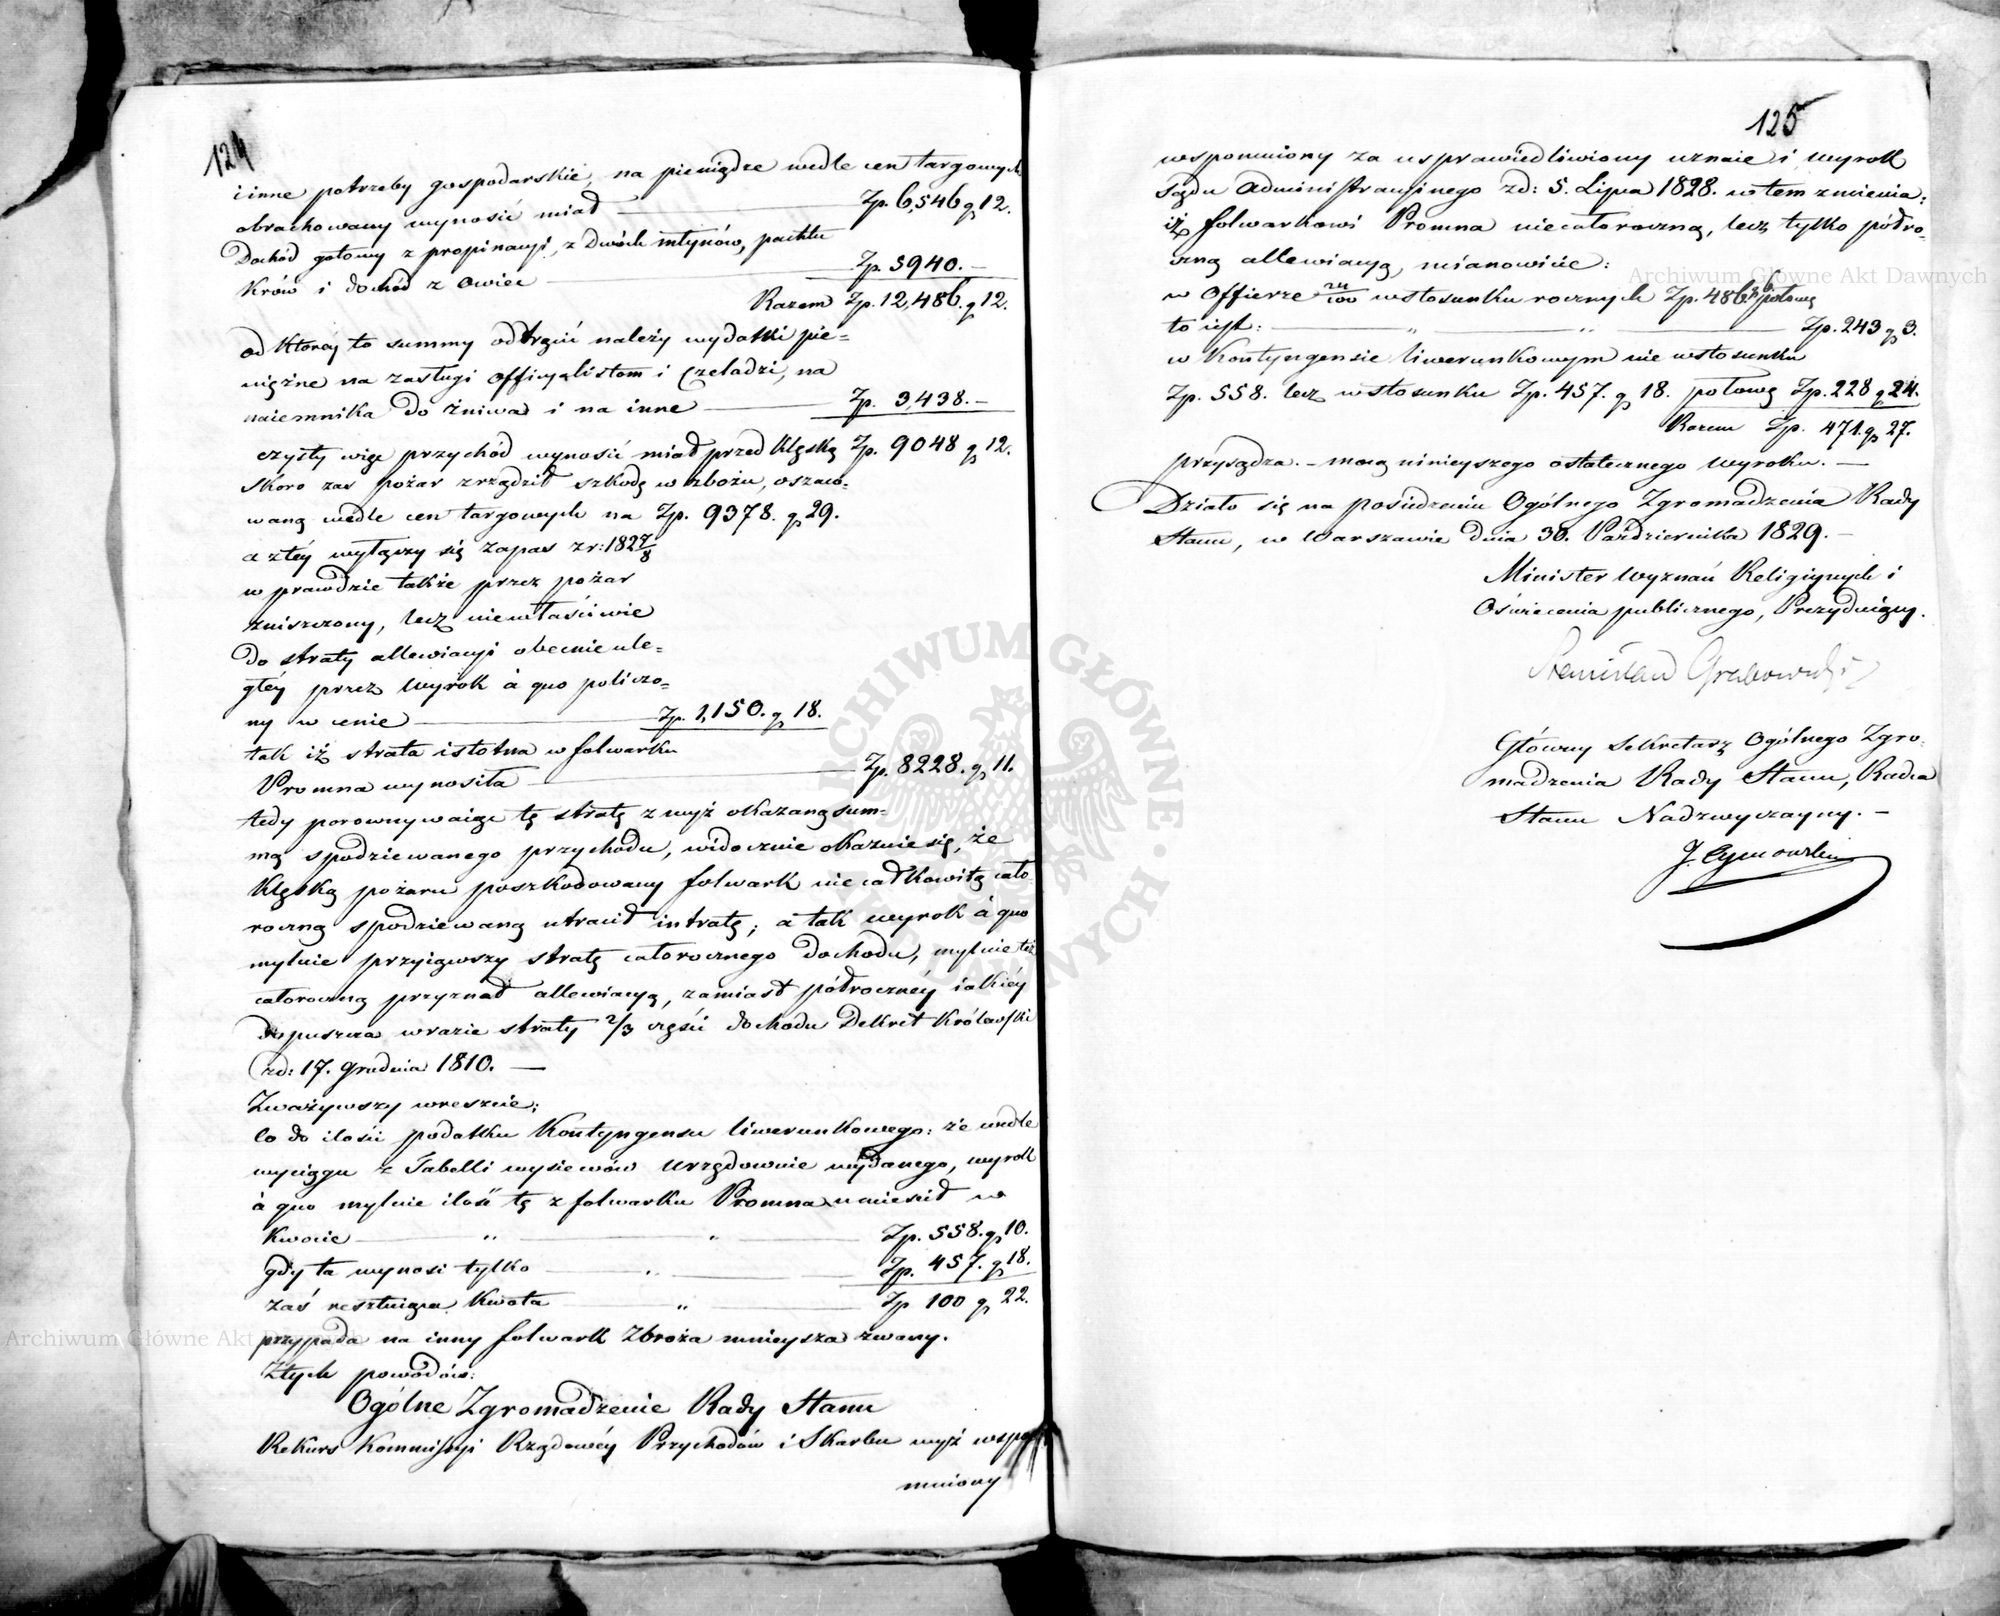 124
i inne potrzeby gospodarskie, na pieniądze wedle cen targowych
obrachowany wynosić miał Zp. 6,546 g 12.
Dochód gotowy z propinacyi, z dwóch młynów, pachtu
Krów i dochód z Owiec Zp. 5940.—
Razem Zp. 12,486. g 12.
od którey to summy odtrącić należy wydatki pie=
niężne na zasługi officyalistom i czeladzi, na
naiemnika do żniwa i na inne Zp. 3,438.—
czysty więc przychód wynosić miał przed klęską Zp. 9048 g 12.
Skoro zaś pożar zrządził szkodę w zbożu, oszaco=
waną wedle cen targowych na Zp. 9378. g 29.
a z téy wyłączy się zapas z r: 1827/8
w prawdzie także przez pożar
zniszczony, lecz niewłaściwie
do straty allewiacyi obecnie ule=
głéy przez Wyrok à quo policzo=
ny w cenie Zp. 1,150. g 18.
tak iż strata istotna w folwarku
Promna wynosiła Zp. 8228. g 11.
tedy porownywaiąc tę stratę z wyż okazaną sum=
mą spodziewanego przychodu, widocznie okazuie się, że
Klęską pożaru poszkodowany folwark nie całkowitą cało
roczną spodziewaną utracił intratę; a tak wyrok à quo
mylnie przyiąwszy stratę całorocznego dochodu, mylnie też
całoroczną przyznał allewiacyą, zamiast półrocznéy iakiéy
dopuszcza w razie straty 2/3 części dochodu Dekret Królewski
z d: 17. Grudnia 1810. —
Zważywszy wreszcie;
Co do ilości podatku Kontyngensu liwerunkowego: że wedle
wyciągu z Tabelli wysiewów urzędownie wydanego, wyrok
à quo mylnie ilość tę z folwarku Promna umieścił w
Kwocie „ „ Zp. 558. g 10.
gdy ta wynosi tylko „ Zp. 457. g 18.
zaś resztuiąca Kwota „ Zp 100 g 22.
przypada na inny folwark Zbroża mnieysza zwany.
Z tych powodów:
Ogólne Zgromadzenie Rady Stanu
Rekurs Kommissyi Rządowéy Przychodów i Skarbu wyż wspo=
mniony
125
wspomniony za usprawiedliwiony uznaie i wyrok
Sądu Administracyinego z d: 5. Lipca 1828. w tem zmienia:
iż folwarkowi Promna nie całoroczną, lecz tylko półro=
czną allewiacyą, mianowicie:
w Offierze 24/100 w stosunku rocznych Zp. 486 g 6 połowę
to iest: „ „ Zp. 243 g 3.
w Kontyngensie liwerunkowym nie w stosunku
Zp. 558. lecz w stosunku Zp. 457. g 18. połowę Zp. 228 g 24.
Razem Zp. 471. g 27.
przysądza. — mocą ninieyszego ostatecznego Wyroku. —
Działo się na posiedzeniu Ogólnego Zgromadzenia Rady
Stanu, w Warszawie dnia 30. Października 1829. —
Minister Wyznań Religiynych i
Oświecenia publicznego, Prezyduiący.
Stanisław Grabowski
Główny Sekretarz Ogólnego Zgro=
madzenia Rady Stanu, Radca
Stanu Nadzwyczayny. —
Archiwum Główne Akt Dawnych
Archiwum Główne Akt Dawnych
ARCHIWUM GŁÓWNE AKT DAWNYCH